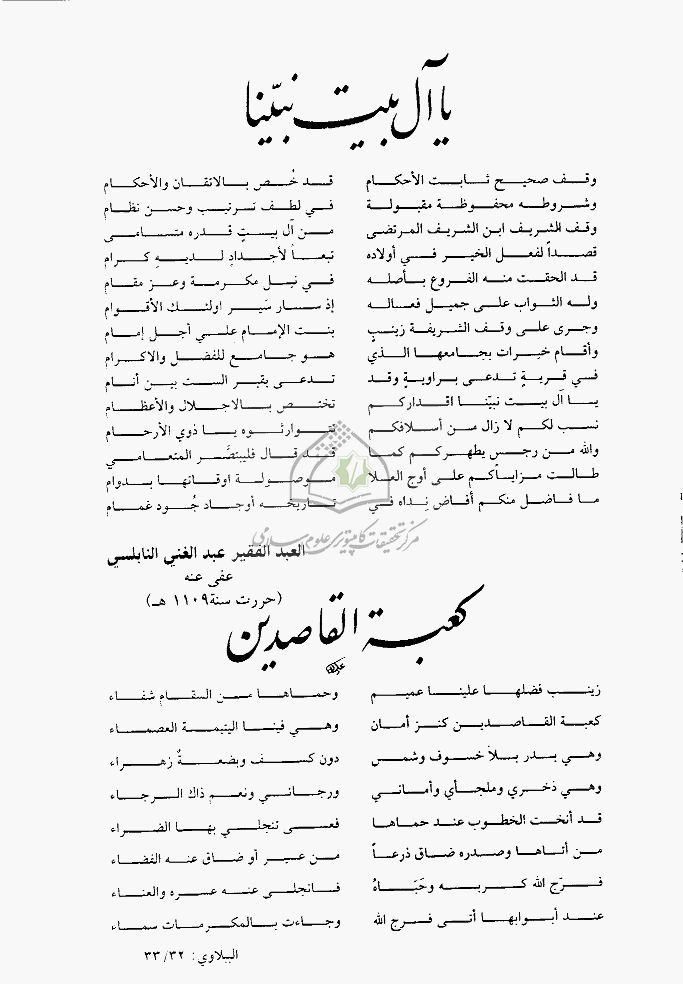 يا آل بيت نبيّنا
وقف صحيح ثابت الأحكام قد خُص بالاتقان والأحكام
وشروطه محفوظة مقبولة في لطف ترتيب وحسن نظام
وقف الشريف ابن الشريف المرتضى من آل بيتٍ قدره متسامى
قصداً لفعل الخير في أولاده تبعاً لأجدادٍ لديه كرام
قد الحقت منه الفروع بأصله في نيل مكرمة وعز مقام
وله الثواب على جميل فعاله إذ سار سَير اولئك الأقوام
وجرى على وقف الشريفة زينبٍ بنت الإمام علي أجل إمام
وأقام خيرات بجامعها الذي هو جامع للفضل والاكرام
في قرية تدعى براويةٍ وقد تدعى بقبر الست بين أنام
يا آل بيت نبيّنا اقداركم تختص بالاجلال والأعظام
نسب لكم لا زال من أسلافكم تتوارثوه يا ذوي الأرحام
والله من رجس يطهركم كما قد قال فليبتصَّر المتعامي
طالت مزاياكم على أوج العلا موصولة اوقاتها بدوام
ما فاضل منكم أفاض نِداه في تاريخه أوجاد جُود غمام
العبد الفقير عبد الغني النابلسي
عفى عنه
(حررت سنة ١١٠٩ هـ)
مركز تحقيقات كامپيوترى علوم اسلامى
كعبة القاصدين
زينب فضلها علينا عميم وحماها من السقام شفاء
كعبة القاصدين كنز أمان وهي فينا اليتيمة العصماء
وهي بدر بلا خسوف وشمس دون كسف وبضعةٌ زهراء
وهي ذخري وملجأي وأماني ورجائي ونعم ذاك الرجاء
قد أنخت الخطوب عند حماها فعسى تنجلي بها الضراء
من أتاها وصدره ضاق ذرعاً من عسر أو ضاق عنه الفضاء
فرّج الله كربه وحَبَاهُ فانجلى عنه عسره والعناء
عند أبوابها أتى فرج الله وجاءت بالمكرمات سماء
الببلاوي: ٣٢/ ٣٣